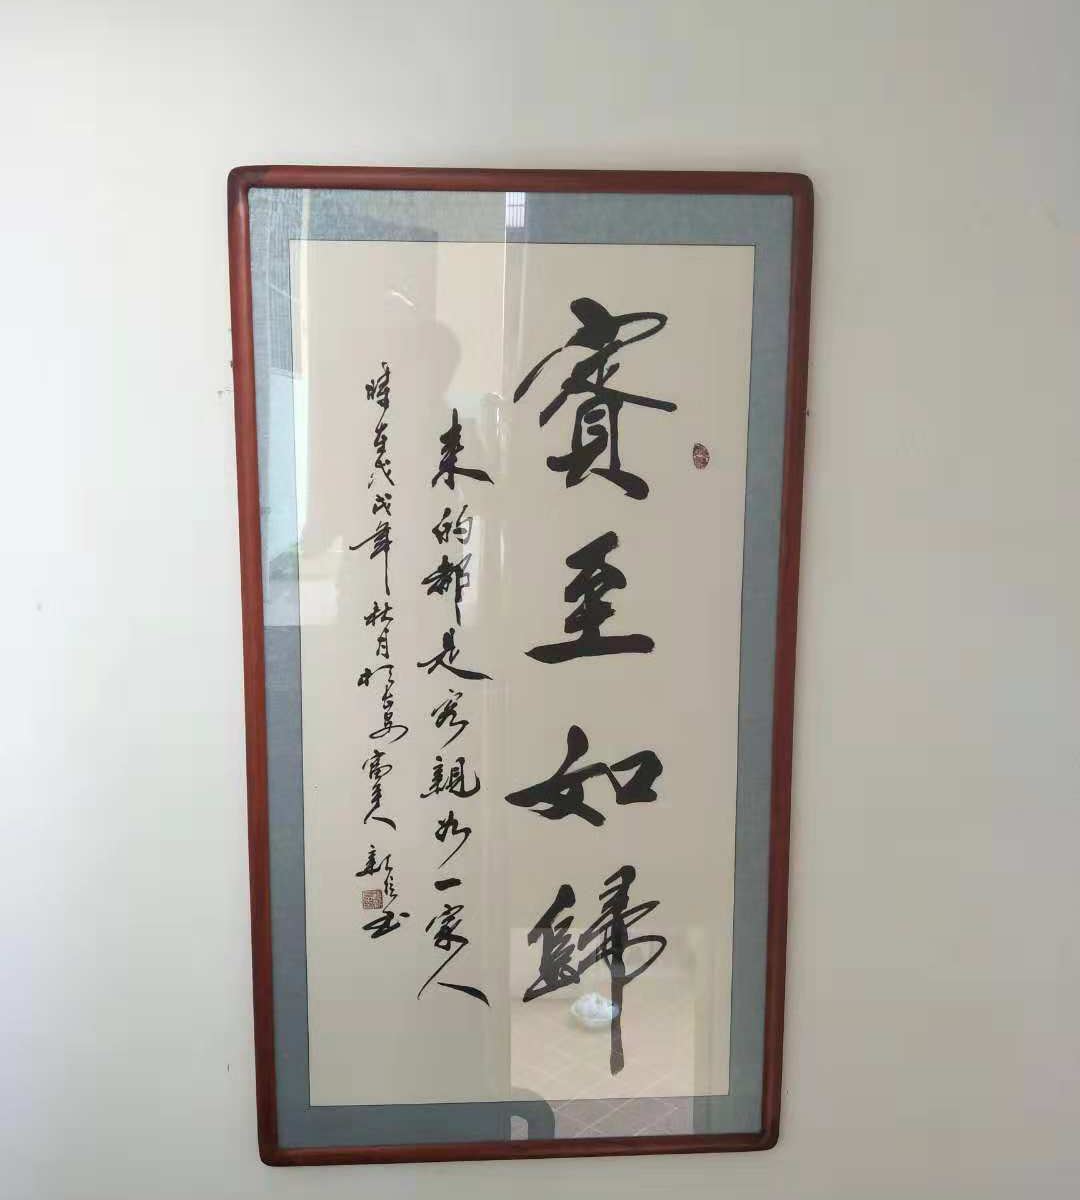 賓至如歸
来的都是客親如一家人
時在戊戌年秋月於長安富平人新臣书